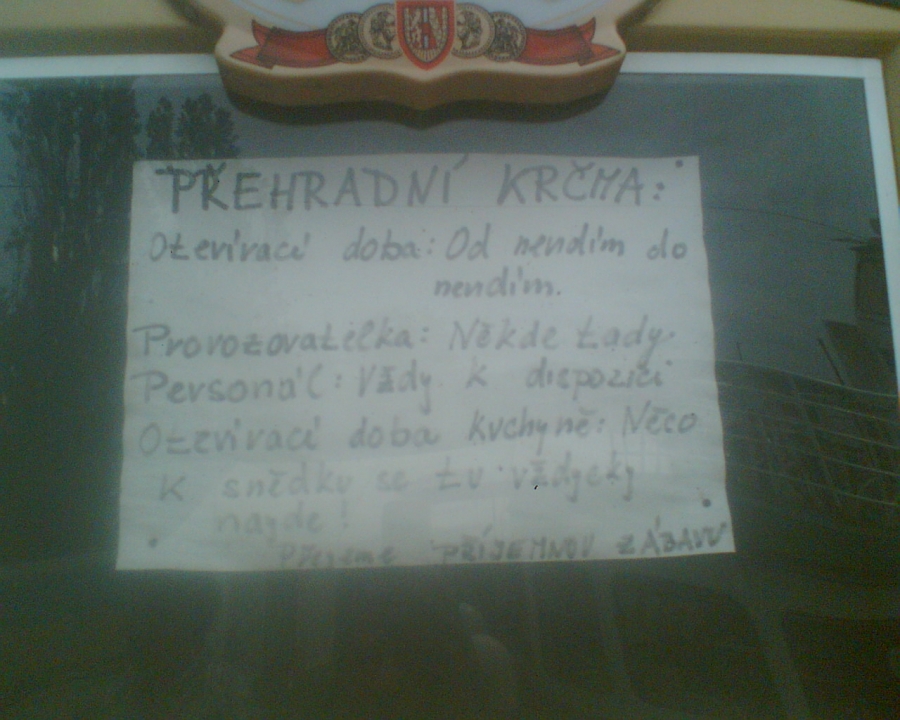 PŘEHRADNÍ KRČMA:
Otevírací doba: Od nendim do
nendim.
Provozovatelka: Někde tady
Personál: Vždy k dispozici
Otevírací doba kuchyně: Něco
k snědku se tu vždycky
najde!
Přejeme PŘÍJEMNOU ZÁBAVU